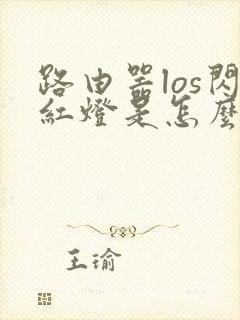 路由器los閃
紅燈是怎麼
王瑜